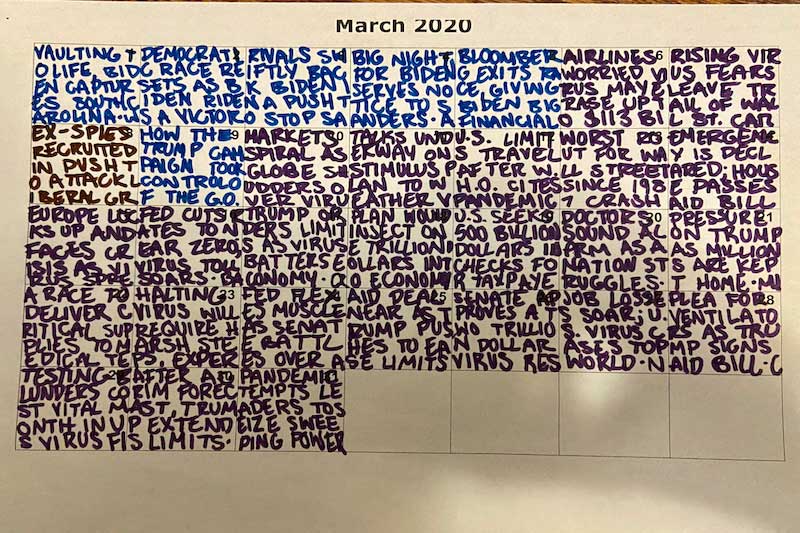 March 2020
VAULTING T
O LIFE, BID
EN CAPTUR
ES SOUTH C
AROLINA·
DEMOCRATI
C RACE RE
SETS AS B
IDEN RIDE
S A VICTOR
RIVALS SW
IFTLY BAC
K BIDEN I
N A PUSH T
O STOP SA
BIG NIGHT
FOR BIDEN
SERVES NO
TICE TO S
ANDERS·
BLOOMBER
G EXITS RA
CE, GIVING
BIDEN BIG
FINANCIAL
AIRLINES 6
WORRIED VI
RUS MAY E
RASE UP T
O $113 BIL
RISING VIR
US FEARS
LEAVE TR
AIL OF WAL
L ST. CAR
EX-SPIES
RECRUITED
IN PUSH T
O ATTACK L
IBERAL GR
HOW THE 9
TRUMP CAM
PAIGN TOOK
CONTROL O
F THE G.O.
MARKETS
SPIRAL AS
GLOBE SH
UDDERS O
VER VIRU
TALKS UND
ERWAY ON
STIMULUS P
LAN TO W
EATHER V
U.S. LIMIT
S TRAVEL
AFTER W.
H.O. CITES
PANDEMIC
WORST R
OUT FOR W
ALL STREET
SINCE 198
7 CRASH
EMERGENC
Y IS DECL
ARED; HOUS
E PASSES
AID BILL
EUROPE LOC
KS UP AND
FACES CR
ISIS AS VI
RUS SPRE
FED CUTS R
ATES TO N
EAR ZERO;
VIRUS TOLL
SOARS·
TRUMP OR
DERS LIMIT
S AS VIRUS
BATTERS E
CONOMY·
PLAN WOULD
INJECT ON
E TRILLION
DOLLARS INT
O ECONOM
U.S. SEEKS
500 BILLION
DOLLARS IN
CHECKS FO
R TAXPAYE
DOCTORS 20
SOUND AL
ARM AS A
NATION ST
RUGGLES·
PRESSURE 21
ON TRUMP
AS MILLION
S ARE KEP
T HOME·
A RACE TO
DELIVER C
RITICAL SUP
PLIES TO M
EDICAL TE
HALTING
VIRUS WILL
REQUIRE H
ARSH STE
PS, EXPER
FED FLEX
ES MUSCLE
AS SENAT
E BATTL
ES OVER A
AID DEAL
NEAR AS T
RUMP PUS
HES TO EA
SE LIMITS
SENATE AP
PROVES A T
WO TRILLIO
N DOLLAR
VIRUS RES
JOB LOSSE
S SOAR; U.
S. VIRUS C
ASES TOP
WORLD·
PLEA FOR 28
VENTILATO
RS AS TRU
MP SIGNS
AID BILL·
TESTING B
LUNDERS CO
ST VITAL M
ONTH IN U
S VIRUS FI
AFTER A
GRIM FOREC
AST, TRUM
P EXTEND
S LIMITS·
PANDEMIC
TEMPTS LE
ADERS TO S
EIZE SWEE
PING POWER